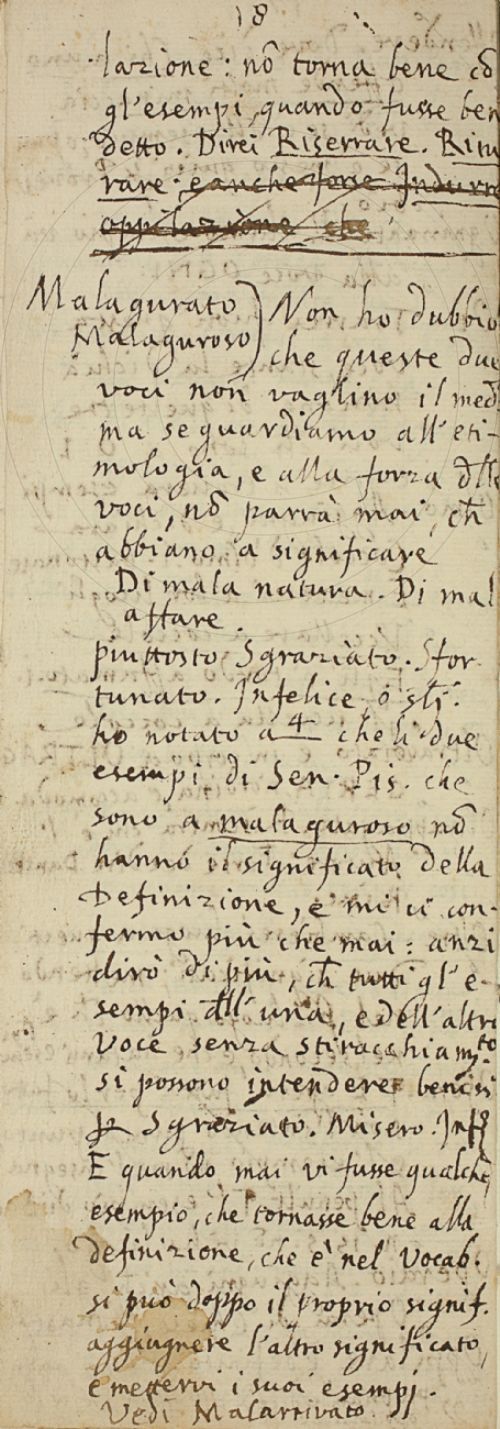 18
lazione: nõ torna bene cõ
gl'esempi, quando fusse ben
detto. Direi Riserrare. Ritu
rare. e anche forse Indurre
oppilazione che
Malagurato
Malaguroso) Non ho dubbio
che queste due
voci non vaglino il med.
ma se guardiamo all'eti-
mologia, e alla forza dlle
voci, nõ parrà mai, ch̃
abbiano a significare
Di mala natura. Di mal
affare.
piuttosto Sgraziato. Sfor
tunato. Infelice, o
ho notato a 4 che li due
esempi di Sen. Pis. che
sono a malaguroso nõ
hanno il significato della
Definizione, e mi ci con-
fermo più che mai: anzi
dirò di più, ch̃ tutti gl'e-
sempi dll'una, e dell'altra
voce senza stiracchiamto
si possono intendere benisi
p Sgraziato. Misero. Inf
E quando mai vi fusse qualche
esempio, che tornasse bene alla
definizione, che è nel Vocab.
si può doppo il proprio signif.
aggiugnere l'altro significato,
e mettervi i suoi esempj.
Vedi Malarrivato